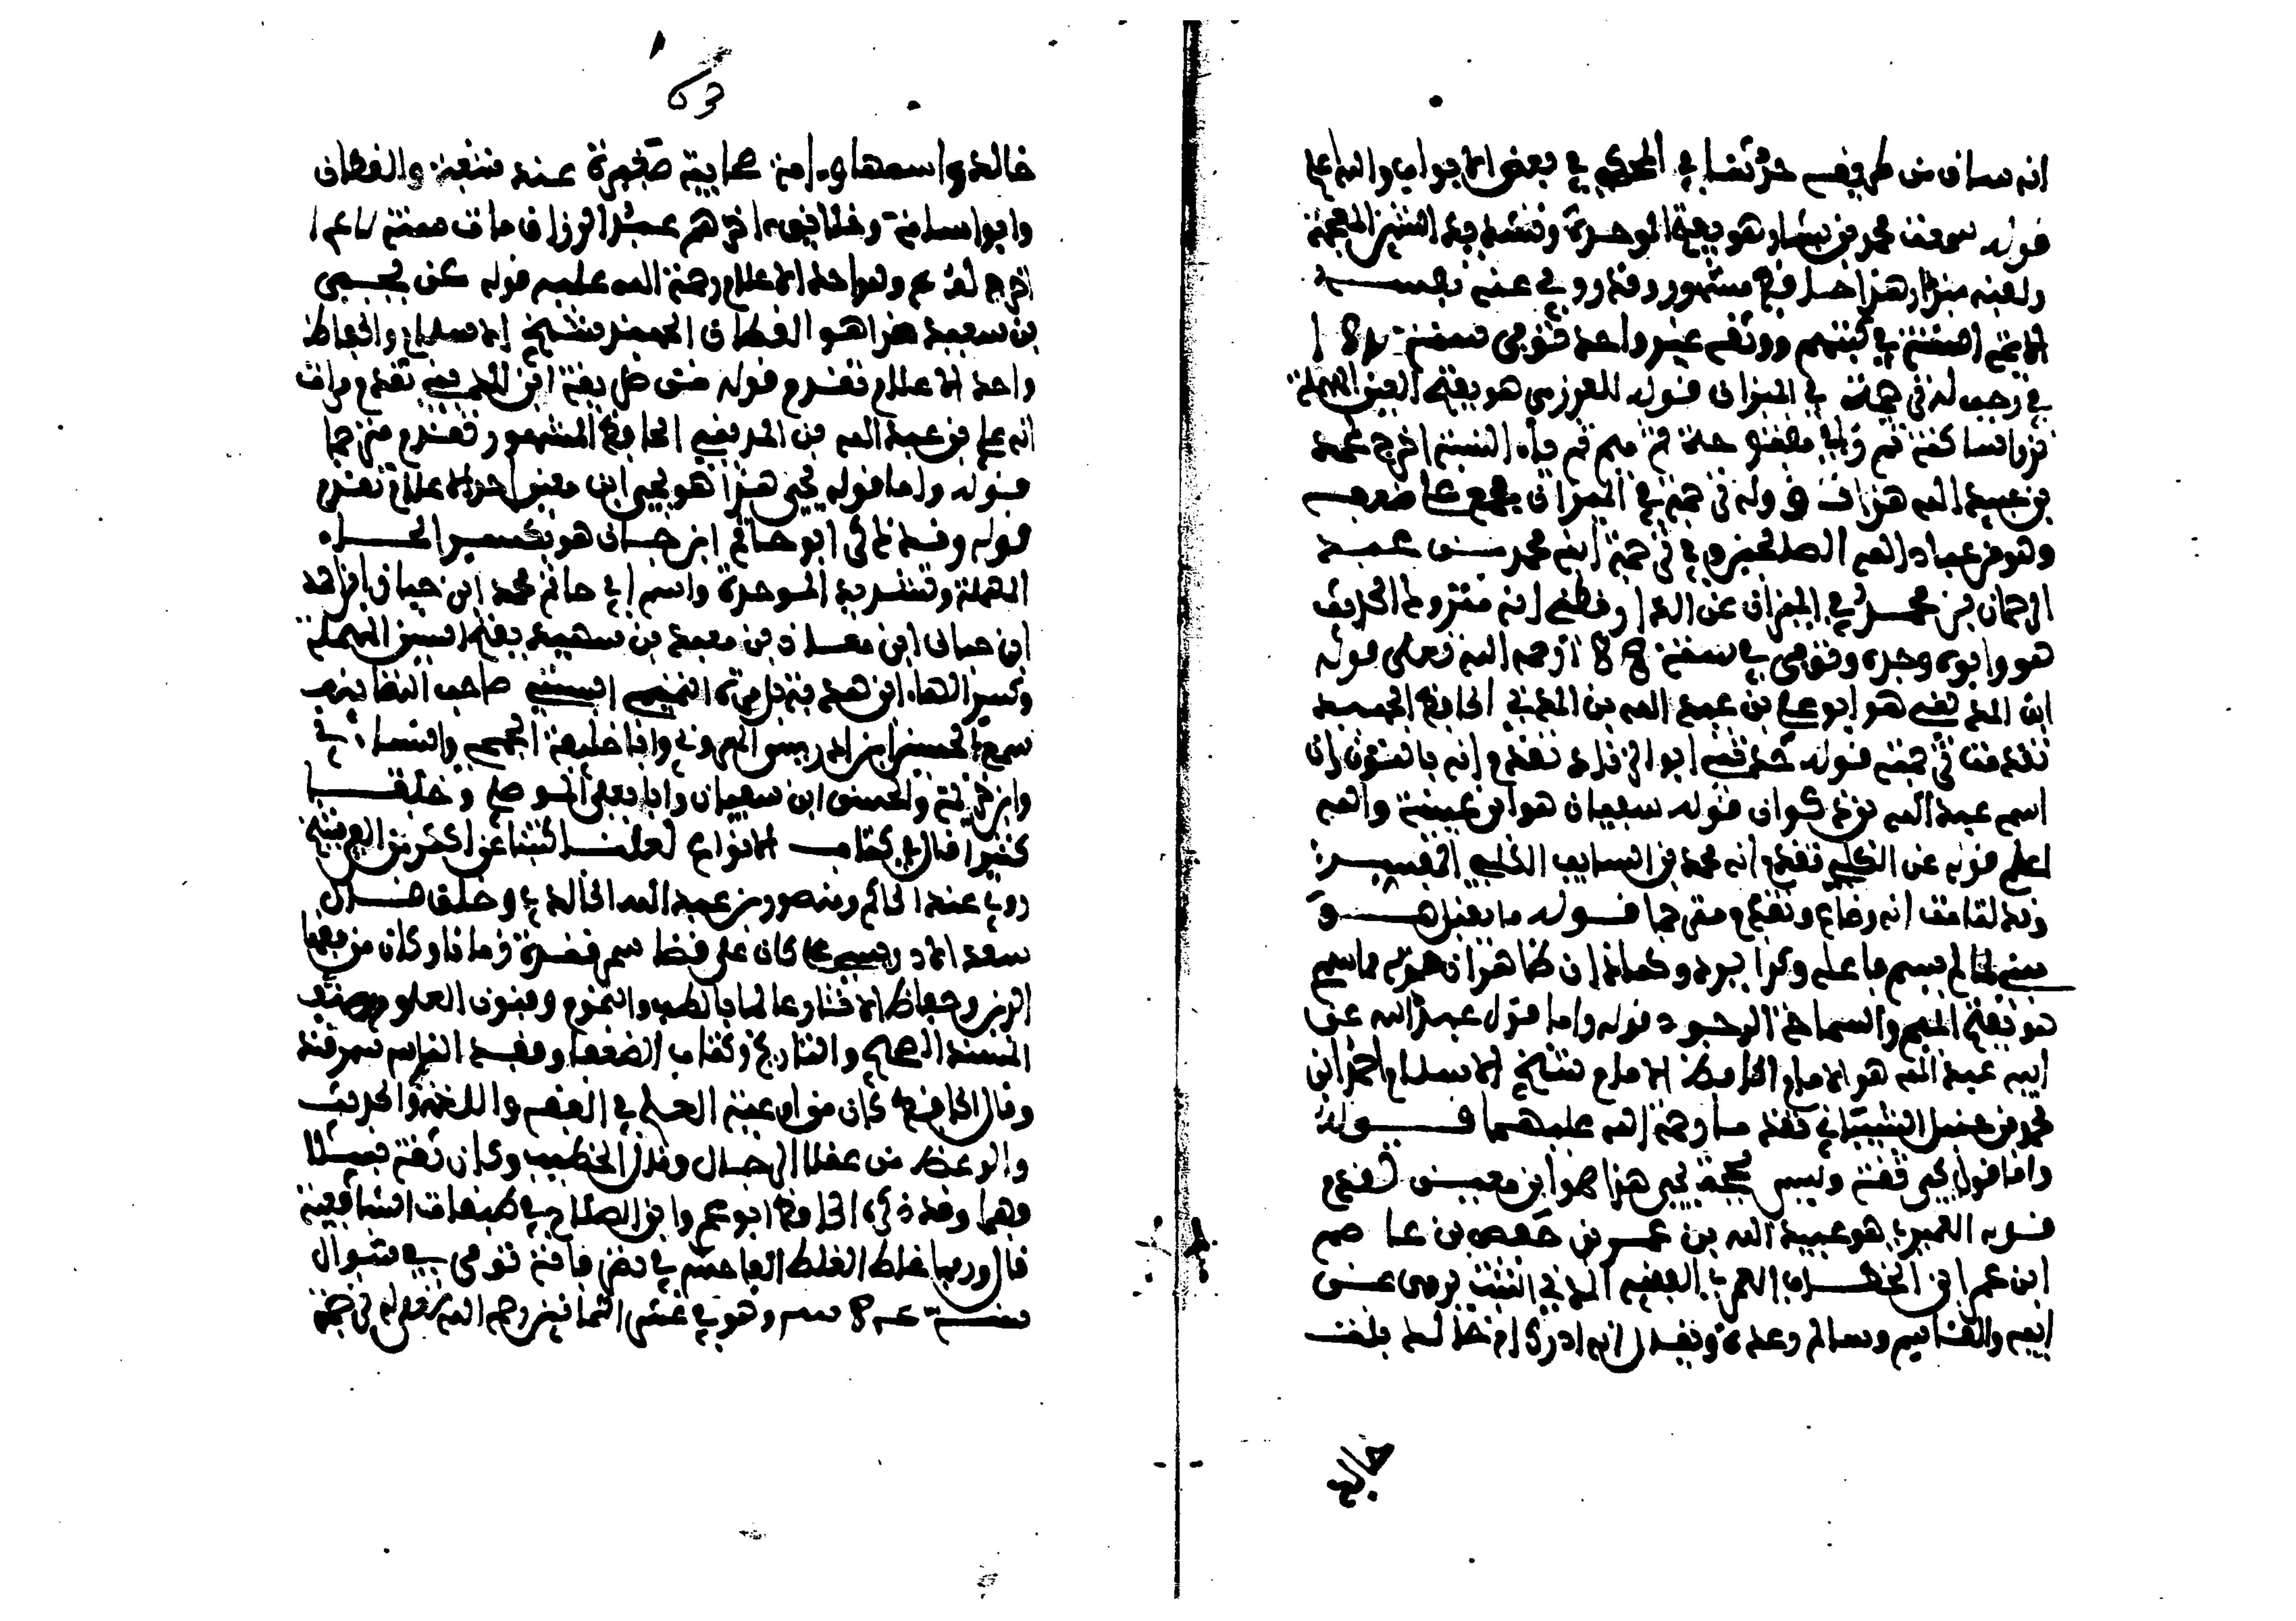 انه ساق من طريقه حديثا في المحكي في بعض الابواب والله اعلم
قوله سمعت محمد بن بشار هو بفتح الموحدة وتشديد الشين المعجمة
ولقبه بندار هذا حافظ مشهور وقد روى عنه نفسه
الائمة الستة في كتبهم ووثقه غير واحد توفي سنة
في رجب له ترجمة في الميزان قوله للعرزمي هو بفتح العين المهملة
ثم راء ساكنة ثم زاي مفتوحة ثم ميم ثم ياء النسبة اخرج محمد
بن عبيد الله هذا ت ق وله ترجمة في الميزان مجمع على ضعفه
وهو من عباد الله الصالحين وفي ترجمة ابنه محمد بن عبد
الرحمان بن محمد في الميزان عن الدارقطني انه متروك الحديث
هو وابوه وجده وتوفي في سنة رحمه الله تعالى قوله
ابن المديني هو ابو علي بن عبد الله بن المديني الحافظ الجهبذ
تقدمت ترجمته قوله حدثني ابو الزناد تقدم انه بالنون وان
اسم عبد الله بن ذكوان قوله سفيان هو ابن عيينة والله
اعلم قوله عن الكلبي تقدم انه محمد بن السائب الكلبي المفسر
وقد لقا مت انه وضاع وتقدم مترجما قوله ما يعني هو
مبني لما لم يسم فاعله وكذا يرد وكما اذان ظاهران قوله ماسم
هو بفتح الميم والسماحة الوجود قوله واما قول عبد الله عن
ابيه عبد الله هو الامام الحافظ الامام شيخ الاسلام احمد ابن
محمد بن حنبل الشيباني تقدما رحمة الله عليهما قوله
واما قول يحيى ثقة وليس بحجة يحيى هذا هو ابن معين تقدم
قوله العمري هو عبيد الله بن عمر بن حفص بن عاصم
ابن عمر ابن الخطاب العمري الفقيه المدني الثبت يروى عن
ابيه والقاسم وسالم وعدة ويقال انه ادرك ام خالد بنت
خالد
63
خالد واسمها امة صحابية صغيرة عنه شعبة والقطان
وابو اسامة وخلائق اخرهم عبد الرزاق مات سنة
اخرج له ع وهو احد الاعلام رحمة الله عليه قوله عن يحيى
بن سعيد هذا هو القطان الجهبذ شيخ الاسلام والحفاظ
واحد الاعلام تقدم قوله متى صل بقية ابن المديني تقدم مرات
انه علي بن عبد الله بن المديني الحافظ المشهور وتقدم مترجما
قوله واما قوله يحيى هذا هو يحيى ابن معين احد الاعلام تقدم
قوله وقد ذكر ابو حاتم ابن حبان هو بكسر الحاء
المهملة وتشديد الموحدة واسم ابي حاتم محمد ابن حبان ابن احمد
ابن حبان ابن معاذ بن معبد بن سهيد بفتح السين المهملة
وكسر الهاء ابن هدية بن مرة التميمي البستي صاحب التصانيف
سمع الحسين ابن ادريس الهروي وابا خليفة الجمحي والنسائي
وابن خزيمة والحسن ابن سفيان وابا يعلى الموصلي وخلقا
كثيرا قال في كتاب الانواع لعلنا كتبنا عن اكثر من الفي شيخ
روى عنه الحاكم ومنصور بن عبد الله الخالدي وخلق قال
سعد الادريسي كان على قضا سمرقند زمانا وكان من فقها
الدين وحفاظ الاثار عالما بالطب والنجوم وفنون العلوم صنف
المسند الصحيح والتاريخ وكتاب الضعفا وفقه الناس بسمرقند
وقال الحاكم كان من اوعية العلم في الفقه واللغة والحديث
والوعظ من عقلا الرجال وقال الخطيب وكان ثقة نبيلا
فهما وقد ذكره الحافظ ابو عمرو ابن الصلاح في طبقات الشافعية
قال وربما غلط الغلط الفاحش في تصرفاته توفي في شوال
سنة وهو في عشر الثمانين رحمه الله تعالى له ترجمة